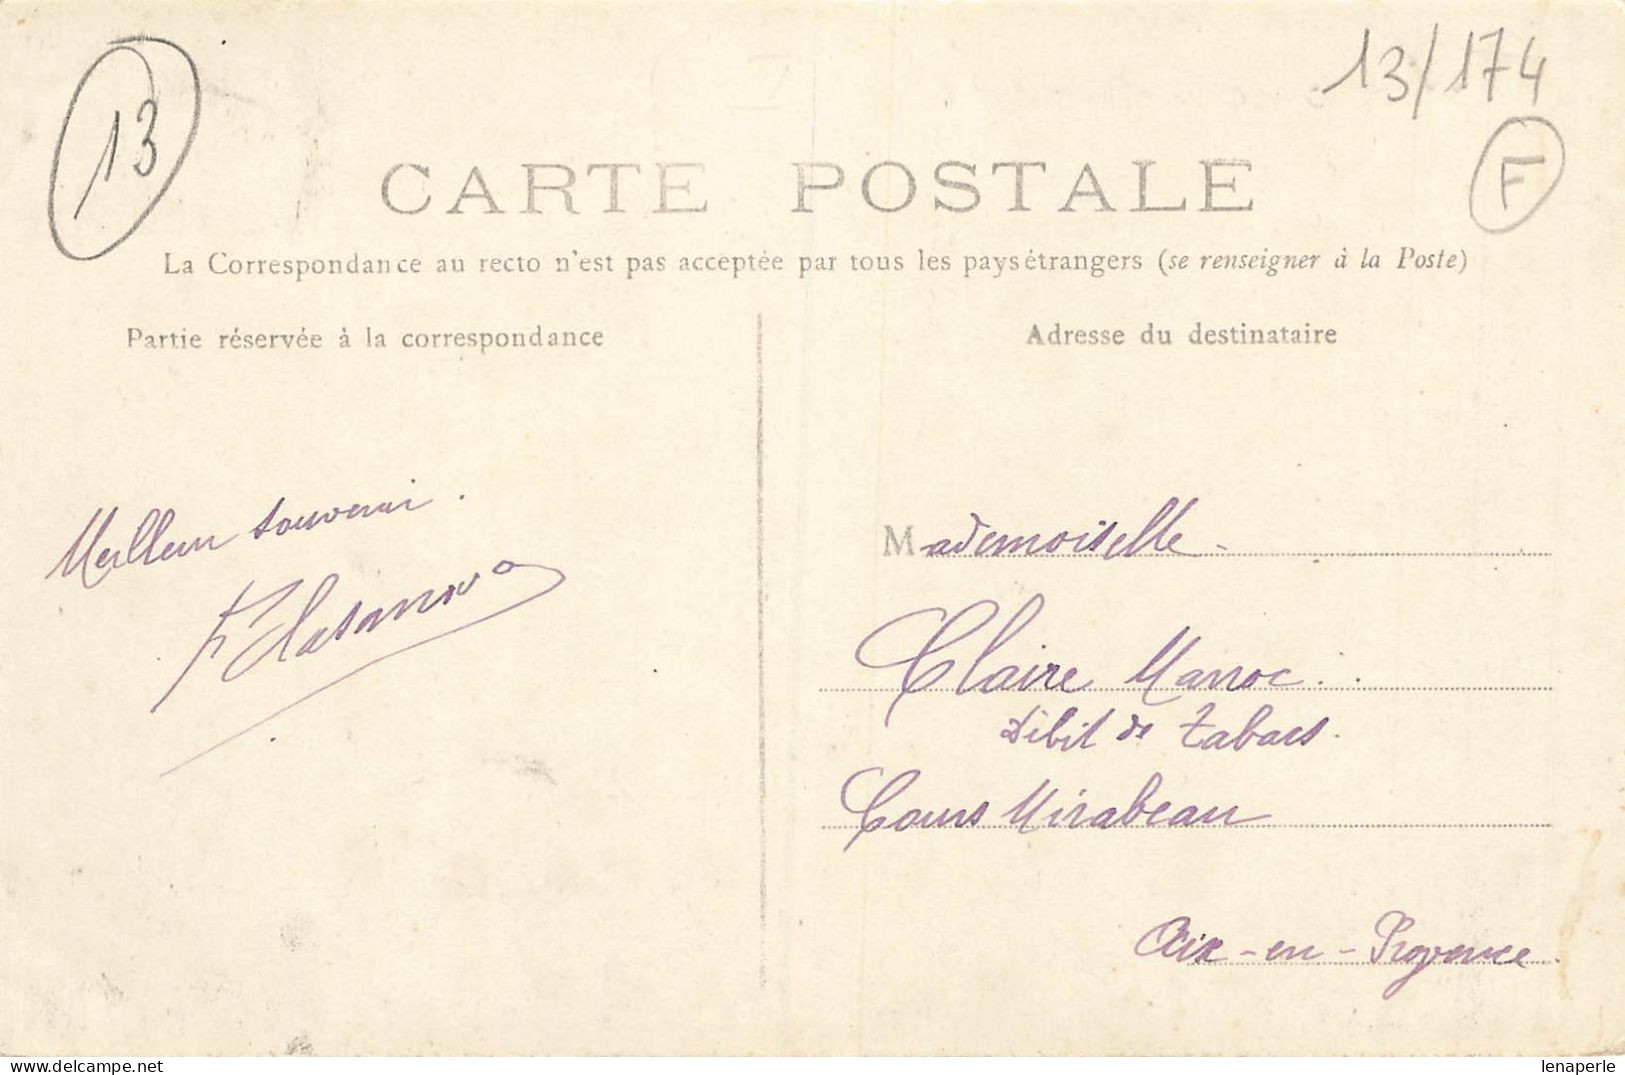 13
13/174
F
CARTE POSTALE
La Correspondance au recto n'est pas acceptée par tous les pays étrangers (se renseigner à la Poste)
Partie réservée à la correspondance
Adresse du destinataire
Meilleur souvenir.
Mademoiselle.
Claire Marroc.
Débit de Tabacs.
Cours Mirabeau
Aix-en-Provence.
lenaperle